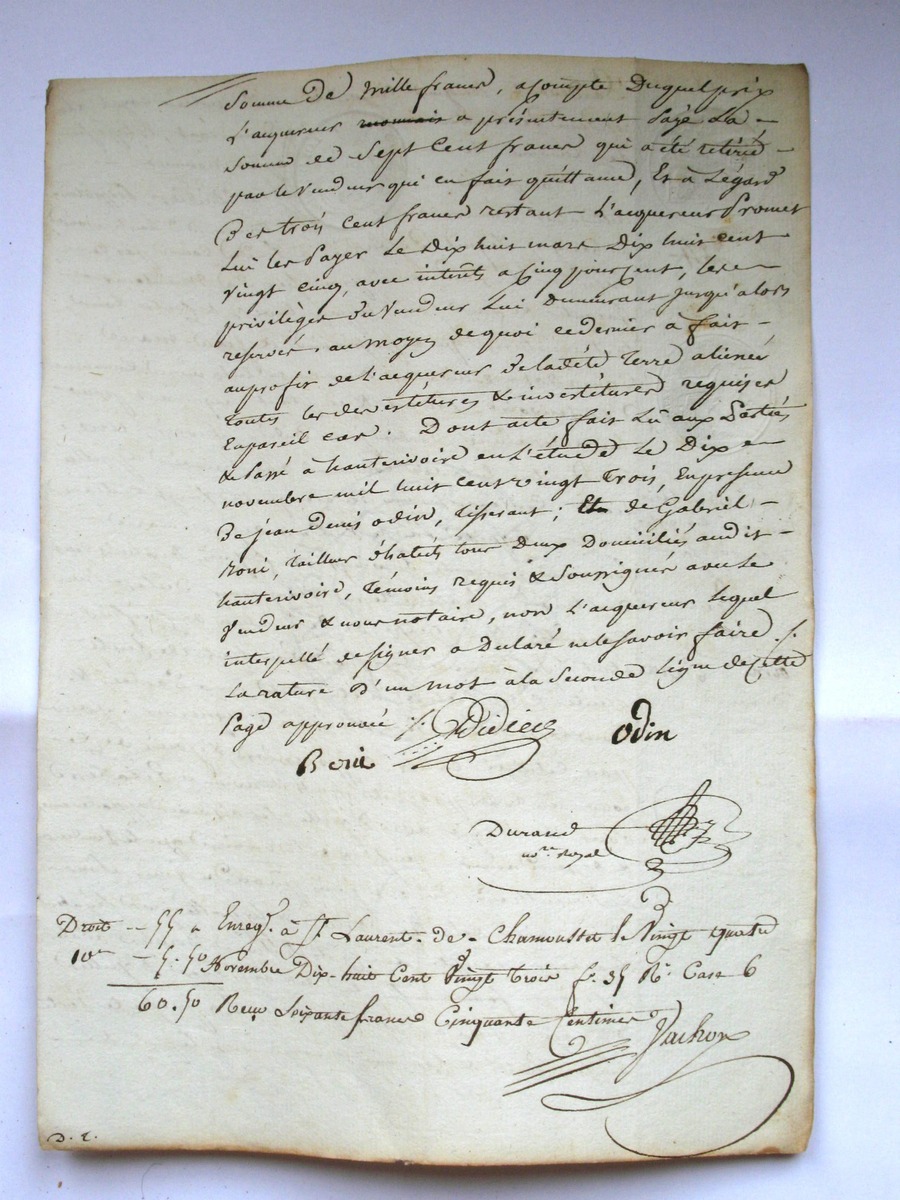 Somme de mille francs, a compte duquel prix
L'aquereur monnais a présentement payé La
Somme de Sept Cent francs qui a été retirée
par le vendeur qui en fait quittance, Et à Légard
Des trois cent francs restant L'acquereur Promet
Lui les Payer Le Dix huit mars Dix huit cent
vingt cinq, avec intérêts a Cinq pour Cent, les
privilèges du Vendeur Lui demeurant jusqu'alors
reservés. au moyen de quoi ce dernier à fait
au profit de l'acquereur de la déte Terre alienée
toutes les devestitures & investitures requises
En pareil cas. Dont acte fait Lû aux Parties
& Passé à hauterivoire en L'étude Le Dix
novembre mil huit cent vingt Trois, En presence
De jean Denis odin, Tisserant; de Gabriel
Roni, Tailleur d'habits tous deux Domiciliés audit
hauterivoire, Témoins requis & Soussignés avec Le
Vendeur & nous notaire, non L'acquereur lequel
interpellé de signer a Déclaré ne le savoir faire ./.
La rature D'un mot à la Seconde Ligne de Cette
Page approuvée ./. Didier odin
Roni
Durand
no.re Royal
Droit -- 55 " Enreg. à St Laurent-de-Chamousset le Vingt quatre
10e -- 5.50 Novembre Dix-huit Cent Vingt trois f. 35 Ro. Case 6
60.50 Reçu Soixante francs Cinquante Centimes Vachon
D. L.